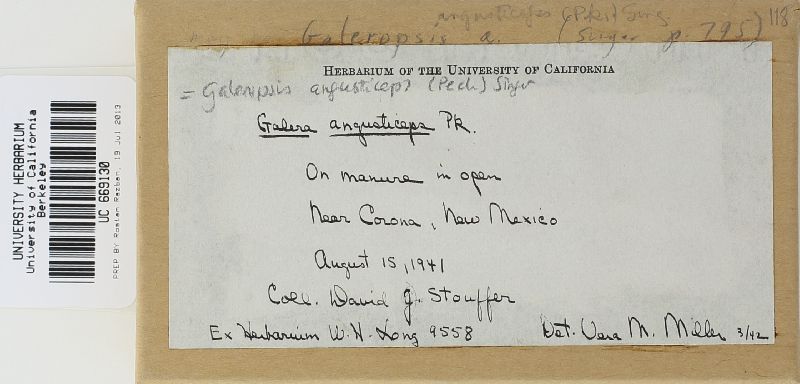 angusticeps (Pk.) Sing
Galeropsis a. (Singer p. 795) 118
HERBARIUM OF THE UNIVERSITY OF CALIFORNIA
= Galeropsis angusticeps (Peck) Singer
Galera angusticeps Pk.
On manure in open
Near Corona, New Mexico
August 15, 1941
Coll. David J. Stouffer
Ex Herbarium W. H. Long 9558 Det. Vera M. Miller 3/42
UNIVERSITY HERBARIUM
University of California
Berkeley
UC 669130
PREP BY Roslan Razban, 19 Jul 2013